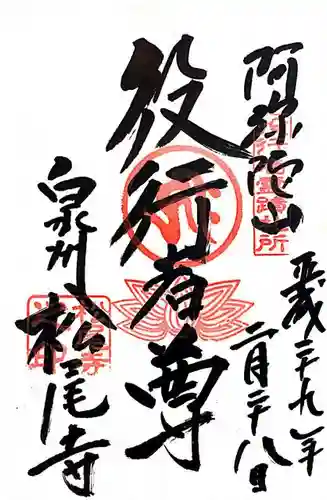 阿弥陀山
平成二十九年
二月二十八日
役行者尊
泉州
松尾寺